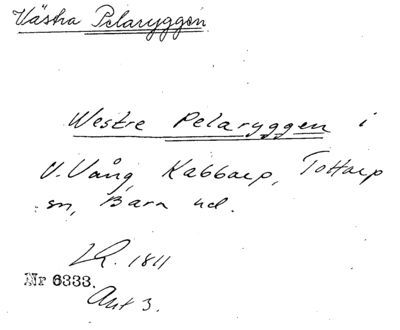 Västra Pelaryggen
Westre Pelaryggen i
V. Vång, Kabbarp, Tottarp
sn, Bara hd.
LR. 1811
Nr 6333.
Akt 3.